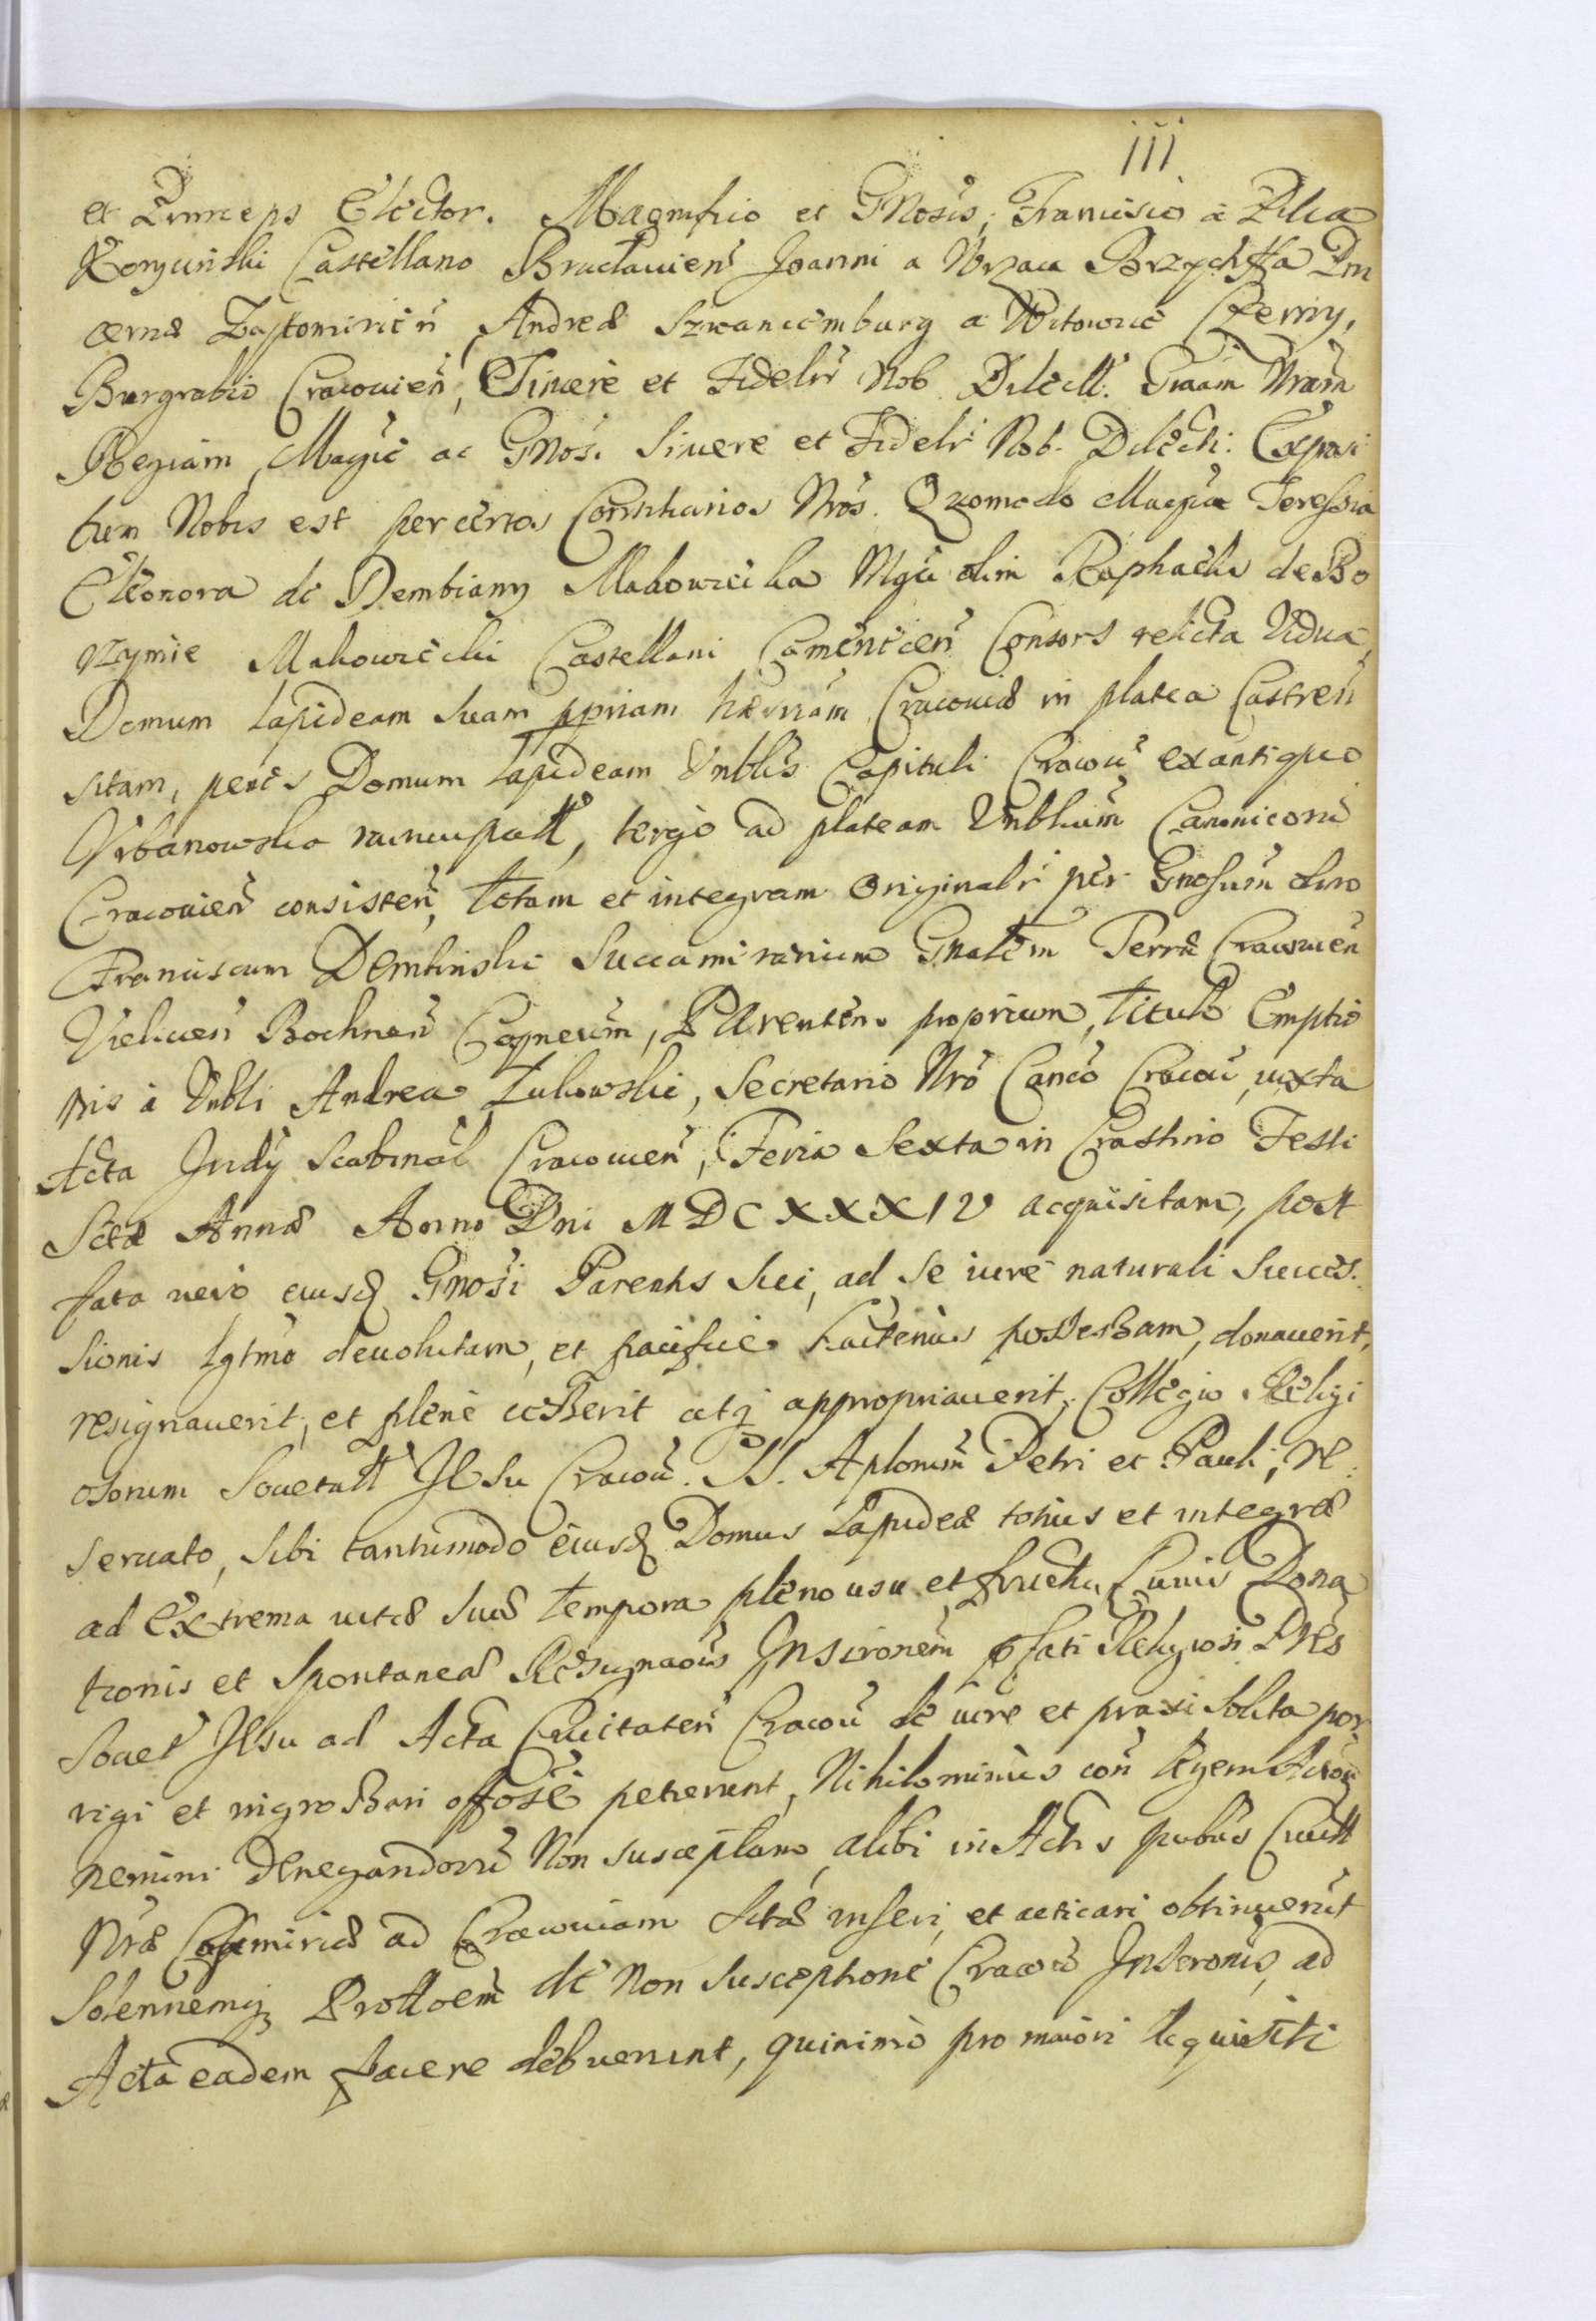 iii
et Princeps Elector. Magnifico et Gnosis, Francisco à Pilca
Koryciński Castellano Bracłauien̄ Joanni a Wrzaca Brzechffa Pin
cernæ Zÿtomirien̄, Andreæ Szwancemburg a Witowic Czerny,
Burgrabio Cracouien̄, Sincere et Fidelr̄ Nob. Dilectt. Graām Nrām
Regiam, Magc̄e ac Gnōsi Sincere et Fidelr̄ Nob. Dilecti. Exposi
tum Nobis est per certos Consiliarios Nrōs. Quomodo Magn̄ca Teressia
Eleonora de Dembiany Makowiecka Mgci olim Raphaelis de Bo
rzymie Makowiecki Castellani Camenecen̄ Consors relicta Vidua,
Domum Lapideam Suam ppriam hæriām Cracouiæ in platea Castren̄
sitam, penes Domum Lapideam Vnblis Capituli Cracou̅ ex antiquo
Vrbanowska nuncupatt, tergo ad plateam Vnblium̄ Canonicorū
Cracouien̄ consisten̄, totam et integram originalr̄ per Gnosum̄ olim
Franciscum Dembinski Succamerarium Gnalem Terræ Cracouien̄
Vielicen̄ Bochnen̄ Parentem proprium, titulo Emptio
nis à Vnbli Andrea Łukowski, Secretario Nrō Canco Cracou̅, iuxta
Acta Judÿ Scabinal̄ Cracouien̄, Feria Sexta in Crastino Festi
Sctæ Annæ Anno Dni MDCXXXIV acquisitam, post
fata vero eiusd Gnōsi Parentis Sui, ad se iure naturali Succes-
sionis lgtmo deuolutam, et pacifice hactenus possessam, donauerit,
resignauerit, et plene cesserit atq appropriauerit, Collegio Religi
osorum Societatt JEsu Cracou̅. SS. Aplorum̄ Petri et Pauli, re:
seruato, sibi tantumodo eiusd Domus Lapideæ totius et integræ
ad extrema vitæ suæ tempora pleno usu et fructu, Cuius Dona
tionis et Spontaneæ Resignaōis Jnscionem pfati Religiosi Pres
Societ JEsu ad Acta Ciuitaten̄ Cracou̅ de iure et praxi solita por
rigi et ingrossari offōse petierunt, Nihilominus con̄ legem Actorū
nemini denegandorū Non susceptam, alibi in Actis pubcis Ciuitt
Nræ Casimiriæ ad Cracouiam Sitæ inseri, et acticari obtinuerūt
Solennemq Prottoem̄ de non susceptione Cracou̅ Jnscronis, ad
Acta eadem facere debuerunt, quinimo pro maiori Acquisiti